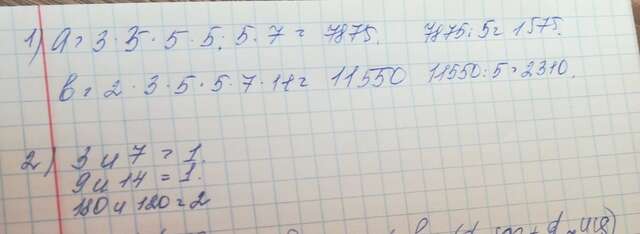 1) a = 3 · 3 5 · 5 · 5 · 5 · 7 = 7875. 7875 : 5 = 1575.
в = 2 · 3 · 5 · 5 · 7 · 11 = 11550 11550 : 5 = 2310.
2) 3 и 7 = 1.
9 и 14 = 1.
180 и 120 = 2